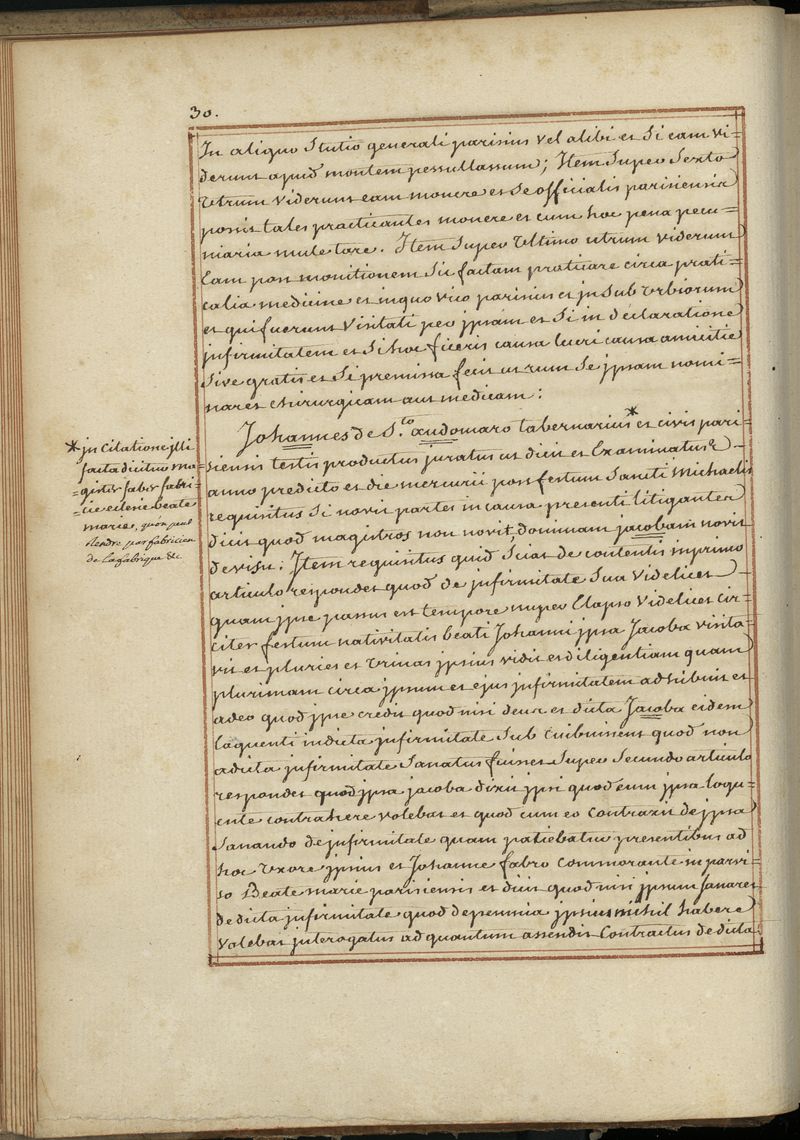 30.
In aliquo Stutio generali parisius vel alibi et Si eam vi=
derunt apud montem pessullassum; Item Super Sexto
Utrum viderunt eam monere et Se officialis parisiensis
possit tales practicantes monere et cum hoc pena pecu=
niaria muletare. Item Super Ultimo utrum viderunt
Eam post monitionem Sic factam praticare circa prati=
calia medicine et in quo vico parisius et in Sub Urbiorum
et qui fuerunt Visitati per jpsam et Si in declaratione
jnfirmitatem et Si hoc ficerit causa lucri causa amicitie
Sive gratis et Si premissa fecit utrum Se jpsam nomi=
naret chirurgicam aut medicam:
Johannes de S.to audomaro tabernarius* et civis pari=
siensis testis productus juratus ut dicit et Examinatus
anno predicto et die mercurii post festum Sancti Michaelis
requisitus Si novit partes in causa presenti litigantes
dicit quod magistros non novit dominam jacobam novit
de visu: Item requisitus quid Sciat de contentis in primo
articulo respondet quod de jnfirmitate Sua Videlicet
quam jpse passus est tempore nuper Elapso Videlicet cir=
citer festum nativitatis beati Johanni jpsa Jacoba visita=
vit et pluries et Urinas jpsius vidit et diligentiam quam
plurimam circa jpsum et ejus jnfirmitatem adhibuit et
adeo quod jpse credit quod nisi deus et dicta Jacoba eidem
Loquenti in dicta jnfirmitate Sub quod non
a dicta jnfirmitate Sanatus fuisset Super Secundo articulo
respondet quod jpsa jacoba dixit jpsi quod cum jpsa loqu=
ente contrahere volebat et quod cum eo contraxit de jpsa
Sanando de jnfirmitate quam patiebatur presentibus ad
hoc Uxore jpsius et Johanne fabro commorante in parvi=
so Beate marie parisiensis et dicit quod nisi jpsum Sanaret
de dicta jnfirmitate quod de pecunia jpsius nihil habere
Volebat jnterogatus ad quantum assendit contractus de dicta
* jn Citatione jlli
facta dicitur ma=
=gister faber fabri=
=cie eclesie beate
marie, qu'on peut
Rendre par fabricien
de La fabrique &c